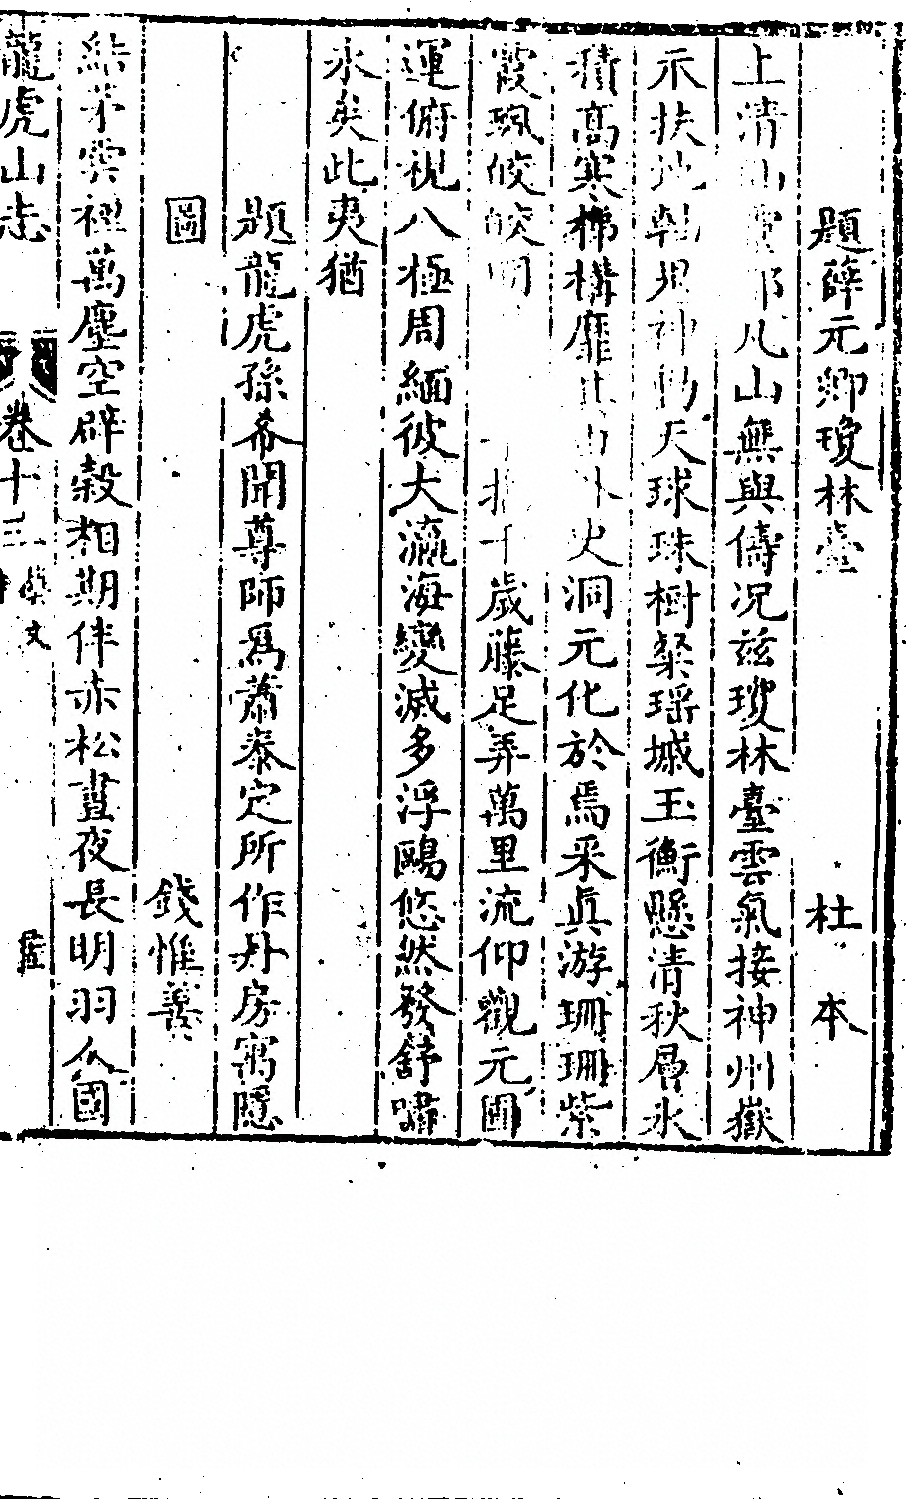 題薛元卿瓊林臺 杜本
上清山凡山無與儔况兹瓊林臺雲氣接神州嶽
示扶地軸鬼神動天球珠樹粲瑶墄玉衡懸清秋層氷
積高寒梯構靡其由外史洞元化於焉采眞游珊珊紫
霞珮皎皎明千歲藤足弄萬里流仰觀元圃
運俯視八極周緬彼大瀛海變滅多浮鷗悠然發舒嘯
永矣此夷猶
題龍虎孫希聞尊師爲蕭泰定所作丹房寓隱
圖 錢惟善
結茅雲裡萬塵空辟穀相期伴赤松晝夜長明羽人國
龍虎山志 卷十三 藝文